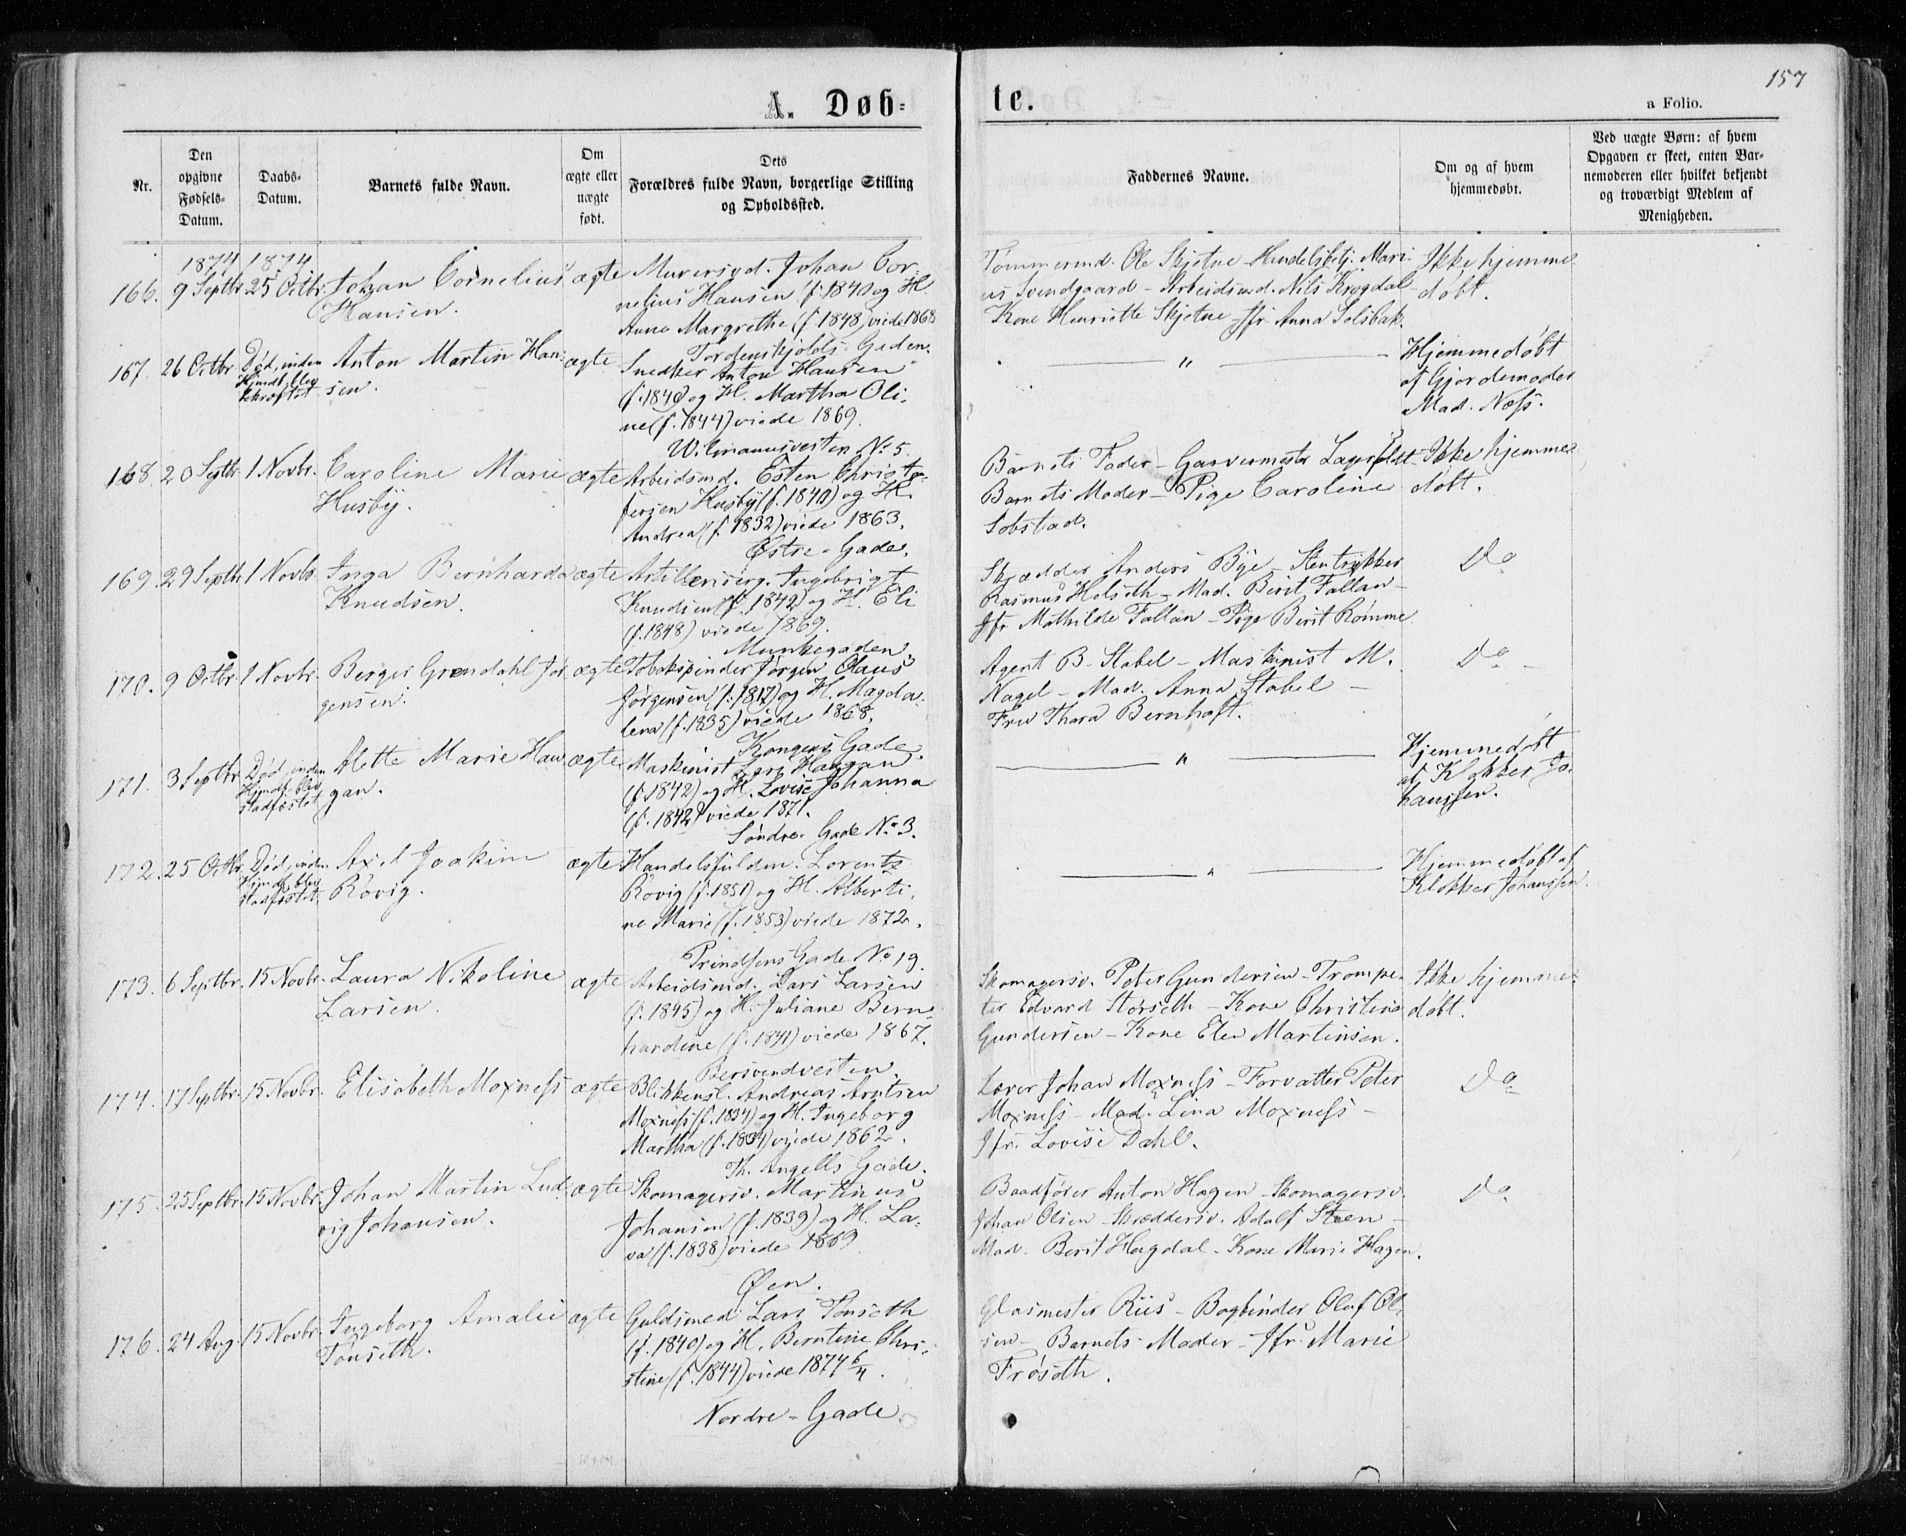 157
A. Døb=
te.
a Folio.
Nr.
Den
opgivne
Fødsels-
Datum.
Daabs-
Datum.
Barnets fulde Navn.
Om
ægte eller
uægte
født.
Dets
Forældres fulde Navn, borgerlige Stilling
og Opholdssted.
Faddernes Navne.
Om og af hvem
hjemmedøbt.
Ved uægte Børn: af hvem
Opgaven er skeet, enten Bar-
nemoderen eller hvilket bekjendt
og troværdigt Medlem af
Menigheden.
1874 1874
166. 9 Septbr. 25 Octbr. Johan Cornelius
Hansen.
ægte
Murersvd. Johan Cor-
nelius Hansen (f. 1840) og H.
Anna Margrethe (f. 1848) viede 1868
Tordenskjolds-Gaden.
Tømmermd. Ole Skjetne - Handelsbetj. Mari-
us Svendgaard - Arbeidsmd. Nils Krogdal -
Kone Henriette Skjetne - Jfr Anna Solsbak.
Ikke hjemme
døbt.
167. 26 Octbr. Død, inden
Hjmdb. blev
bekræftet
Anton Martin Han-
sen.
ægte
Snedker Anton Hansen
(f. 1840) og H. Martha Oli-
ne (f. 1844) viede 1869.
Wilmannsvesten No 5.
"
Hjemmedøbt
af Gjordemoder
Mad. Næss.
168. 20 Septbr. 1 Novbr. Caroline Marie
Husby.
ægte
Arbeidsmd. Esten Christo-
fersen Husby (f. 1840) og H.
Andrea (f. 1832) viede 1863.
Østre-Gade.
Barnets Fader - Garvermester
Barnets Moder - Pige Caroline
Solstad.
Ikke hjemme
døbt.
169. 29 Septbr. 1 Novbr. Inga Bernharda
Knudsen.
ægte
Artilleriserg. Ingebrigt
Knudsen (f. 1842) og H. Eli
(f. 1848) viede 1869.
Munkegaden.
Skrædder Anders Bye - Stentrykker
Rasmus Helseth - Mad. Berit Fallan -
Jfr Mathilde Fallan - Pige Berit Rømme
Do
170. 9 Octbr. 1 Novbr. Berger Grøndahl Jør-
gensen.
ægte
Tobakspinder Jørgen Olaus
Jørgensen (f. 1817) og H. Magda-
lena (f. 1835) viede 1868.
Kongens Gade.
Agent B. Stabel - Maskinist M.
Nagel - Mad. Anna Stabel -
Fru Thora Bernhoft.
Do
171. 3 Septbr. Død, inden
Hjmdb. blev
stadfæstet
Alette Marie Hau-
gan.
ægte
Maskinist Lars Haugan
(f. 1842) og H. Lovise Johanna
(f. 1842) viede 1871.
Søndre-Gade No 3.
"
Hjemmedøbt
af Klokker Jo-
hanssen.
172. 25 Octbr. Død, inden
Hjmdb. blev
stadfæstet
Axel Joakim
Røvig.
ægte
Handelsfuldm. Lorentz
Røvig (f. 1851) og H. Alberti-
ne Marie (f. 1853) viede 1872.
Prindsens Gade No 19.
"
Hjemmedøbt af
Klokker Johanssen.
173. 6 Septbr. 15 Novbr. Laura Nikoline
Larsen.
ægte
Arbeidsmd. Lars Larsen
(f. 1845) og H. Juliane Bern-
hardine (f. 1841) viede 1867.
Bersvendvesten.
Skomagersv. Peter Gundersen - Trompe-
ter Edvard Størseth - Kone Christine
Gundersen - Kone Elen Martinsen.
Ikke hjemme-
døbt.
174. 17 Septbr. 15 Novbr. Elisabeth Moxness
ægte
Blikkensl. Andreas Arntsen
Moxness (f. 1834) og H. Ingeborg
Martha (f. 1834) viede 1862.
Th. Angells Gade.
Lærer Johan Moxness - Forvalter Peter
Moxness - Mad. Lina Moxness -
Jfr. Lovise Dahl.
Do
175. 25 Septbr. 15 Novbr. Johan Martin Lud-
vig Johansen.
ægte
Skomagersv. Martinus
Johansen (f. 1839) og H. La-
va (f. 1838) viede 1869
Øen.
Baadfører Anton Hagen - Skomagersv.
Johan Olsen - Skræddersv. Adolf Steen -
Mad. Berit Hagdal - Kone Marie Hagen.
Do
176. 24 Aug. 15 Novbr. Ingeborg Amalie
Tønseth.
ægte
Guldsmed Lars Tønseth
(f. 1840) og H. Berntine Chri-
stine (f. 1844) viede 1874 6/4.
Nordre-Gade
Glasmester Riis - Bogbinder Oluf Ol-
sen - Barnets Moder - Jfr. Marie
Frøseth.